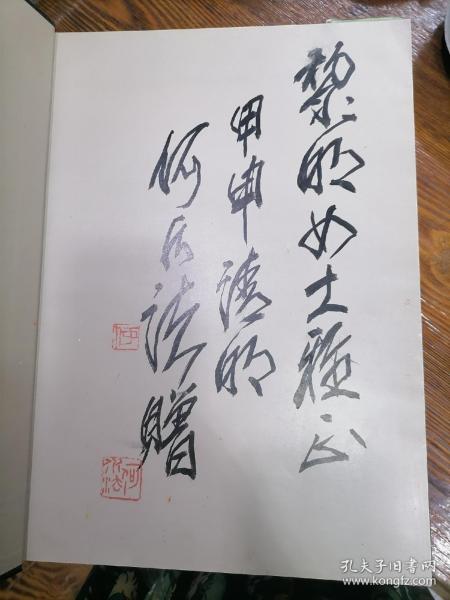 黎明女士雅正
甲申清明
何水法赠
何水法
孔夫子旧书网
www.kongfz.com